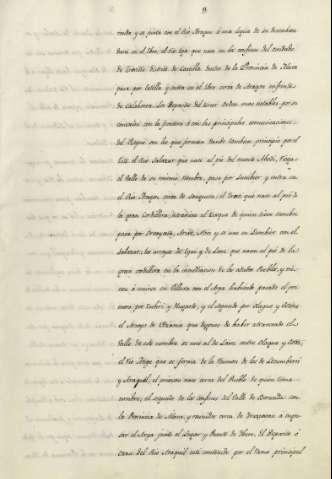 9
y se junta con el Rio Aragon á una legua de su desemboca
dura en el Ebro, el Rio Ega que nace en los confines del condado
de Treviño distrito de Castilla dentro de la Provincia de Alava
pasa por Estella y entra en el Ebro cerca de Aragon enfrente
de Calahorra. Los Depositos del tercer orden mas notables por su
conexion con la frontera ó con las principales comunicaciones
del Reyno son los que forman dando tambien principio por el
Este el Rio Salazar que nace al pie del monte Abodi, riega
el Valle de su mismo nombre, pasa por Lumbier y entra en
el Rio Aragon, cerca de Sangüesa; el Irati que nace al pie de
la gran Cordillera, atraviesa el Bosque de quien toma nombre
pasa por Orbayceta, Aribe, Aoiz y se une en Lumbier con el
Salazar; los arroyos del Egui y de Lanz que nacen al pie de la
gran cordillera en la inmediacion de los citados Pueblos, y vie
nen á unirse en Villava con el Arga habiendo pasado el pri
mero por Zubiri y Huarte, y el segundo por Olague y Ostiz,
el Arroyo de Ulzama que despues de haber atravesado el
Valle de este nombre se une al de Lanz entre Olague y Ostiz;
el Rio Arga que se forma de la Reunion de los de Lecumberri
y Araquil, el primero nace cerca del Pueblo de quien toma
nombre, el segundo de los confines del Valle de Borunda con
la Provincia de Alava, y reunidos cerca de Irurzun á engro
sar el Arga junto al Lugar y Puente de Ibero. El Deposito ó
Canal del Rio Araquil está constituido por el Ramo principal